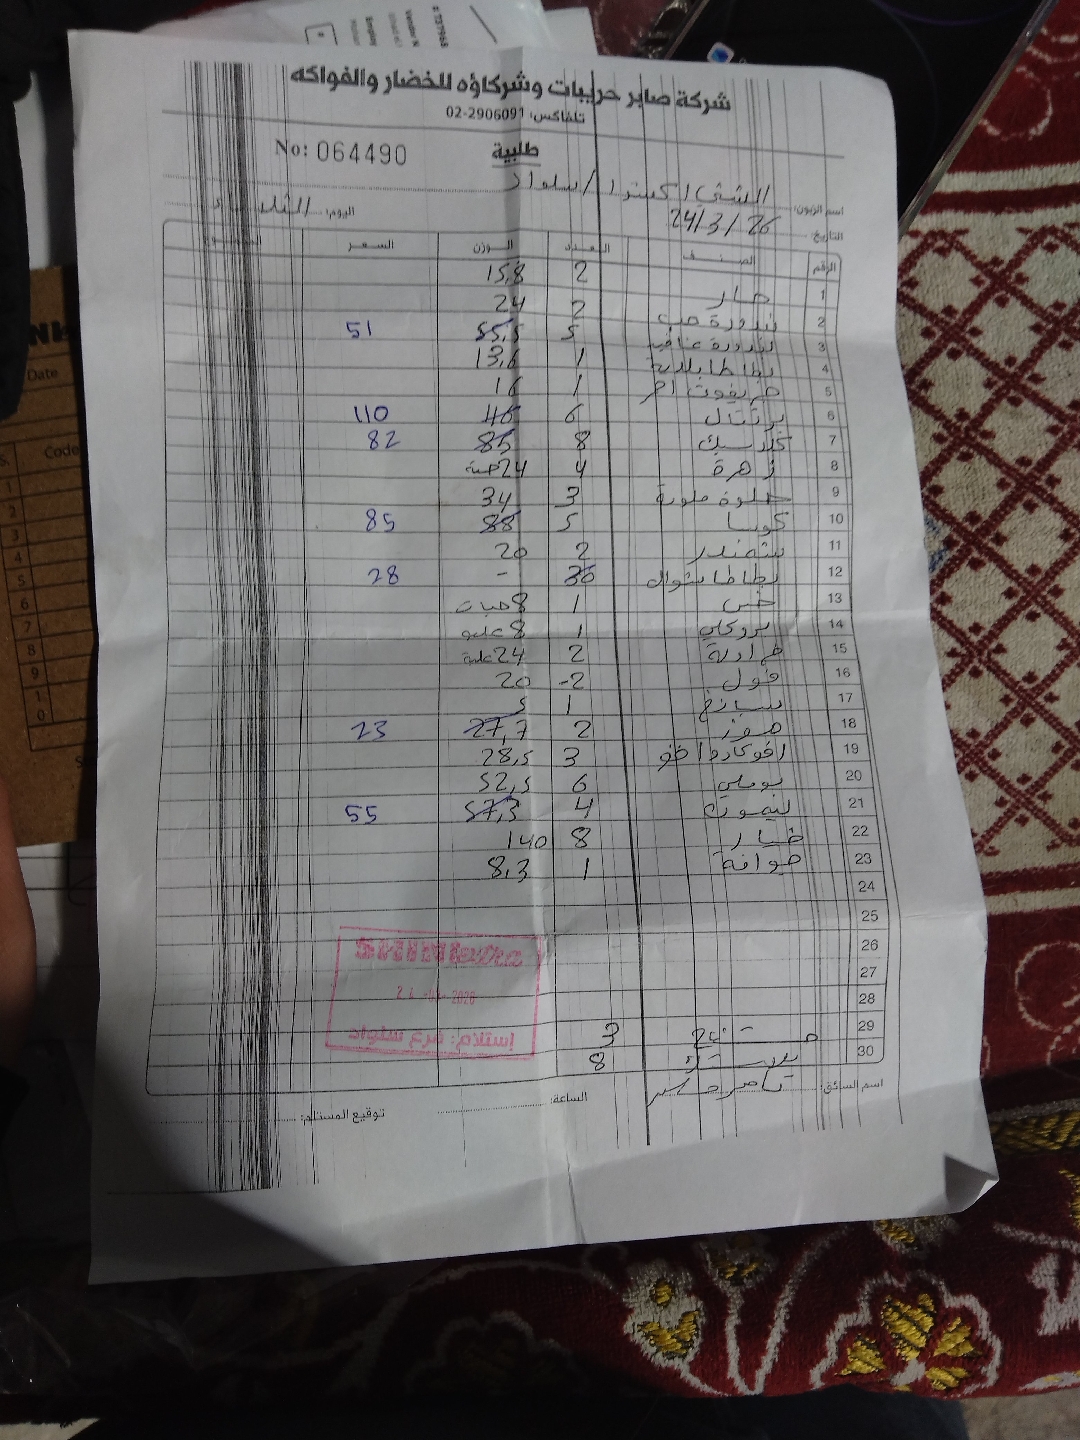 شركة صابر حرايبات وشركاؤه للخضار والفواكه
تلفاكس: 02-2906091
No: 064490
طلبية
اسم الزبون: الشني اكسترا / سلواد
التاريخ: 24/3/26 اليوم: الثلاثاء
الرقم الصنف العدد الوزن السعر
1 خيار 2 15,8
2 بندورة حب 2 24
3 بندورة عناقيد 5 55,5 51
4 بطاطا بلدية 1 13,6
5 جريفوت احمر 1 16
6 برتقال 6 46 110
7 8 85 82
8 زهرة 4 24 حبة
9 3 34
10 كوسا 5 88 85
11 شمندر 2 20
12 بطاطا شوال 30 - 28
13 خس 1 8 حبات
14 بروكلي 1 8 علبه
15 2 24 علبة
16 فول 2- 20
17 سبانخ 1 5
18 موز 2 27,7 23
19 افوكادو 3 28,5
20 بوملي 6 52,5
21 ليمون 4 57,3 55
22 خيار 8 140
23 جوافة 1 8,3
24
25
26
27
28
29 3
30 8
SHINI
2026
إستلام: فرع سلواد
اسم السائق:
الساعة:
توقيع المستلم: